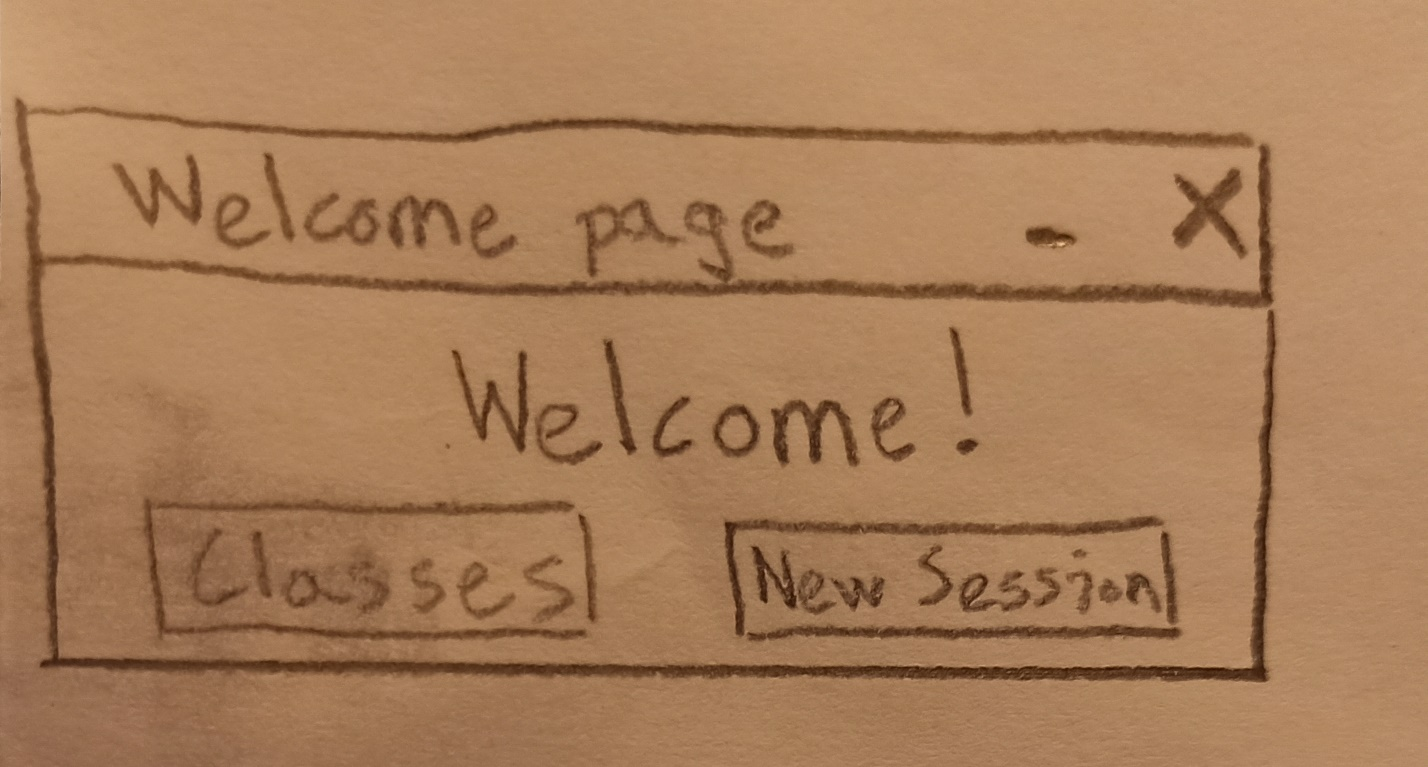 Welcome page - X
Welcome!
Classes
New Session